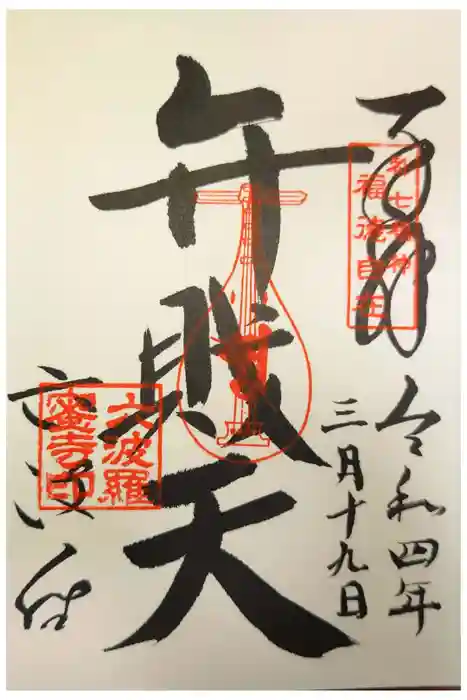 奉拝
都七福神
福徳自在
令和四年
三月十九日
弁財天
六波羅
蜜寺印